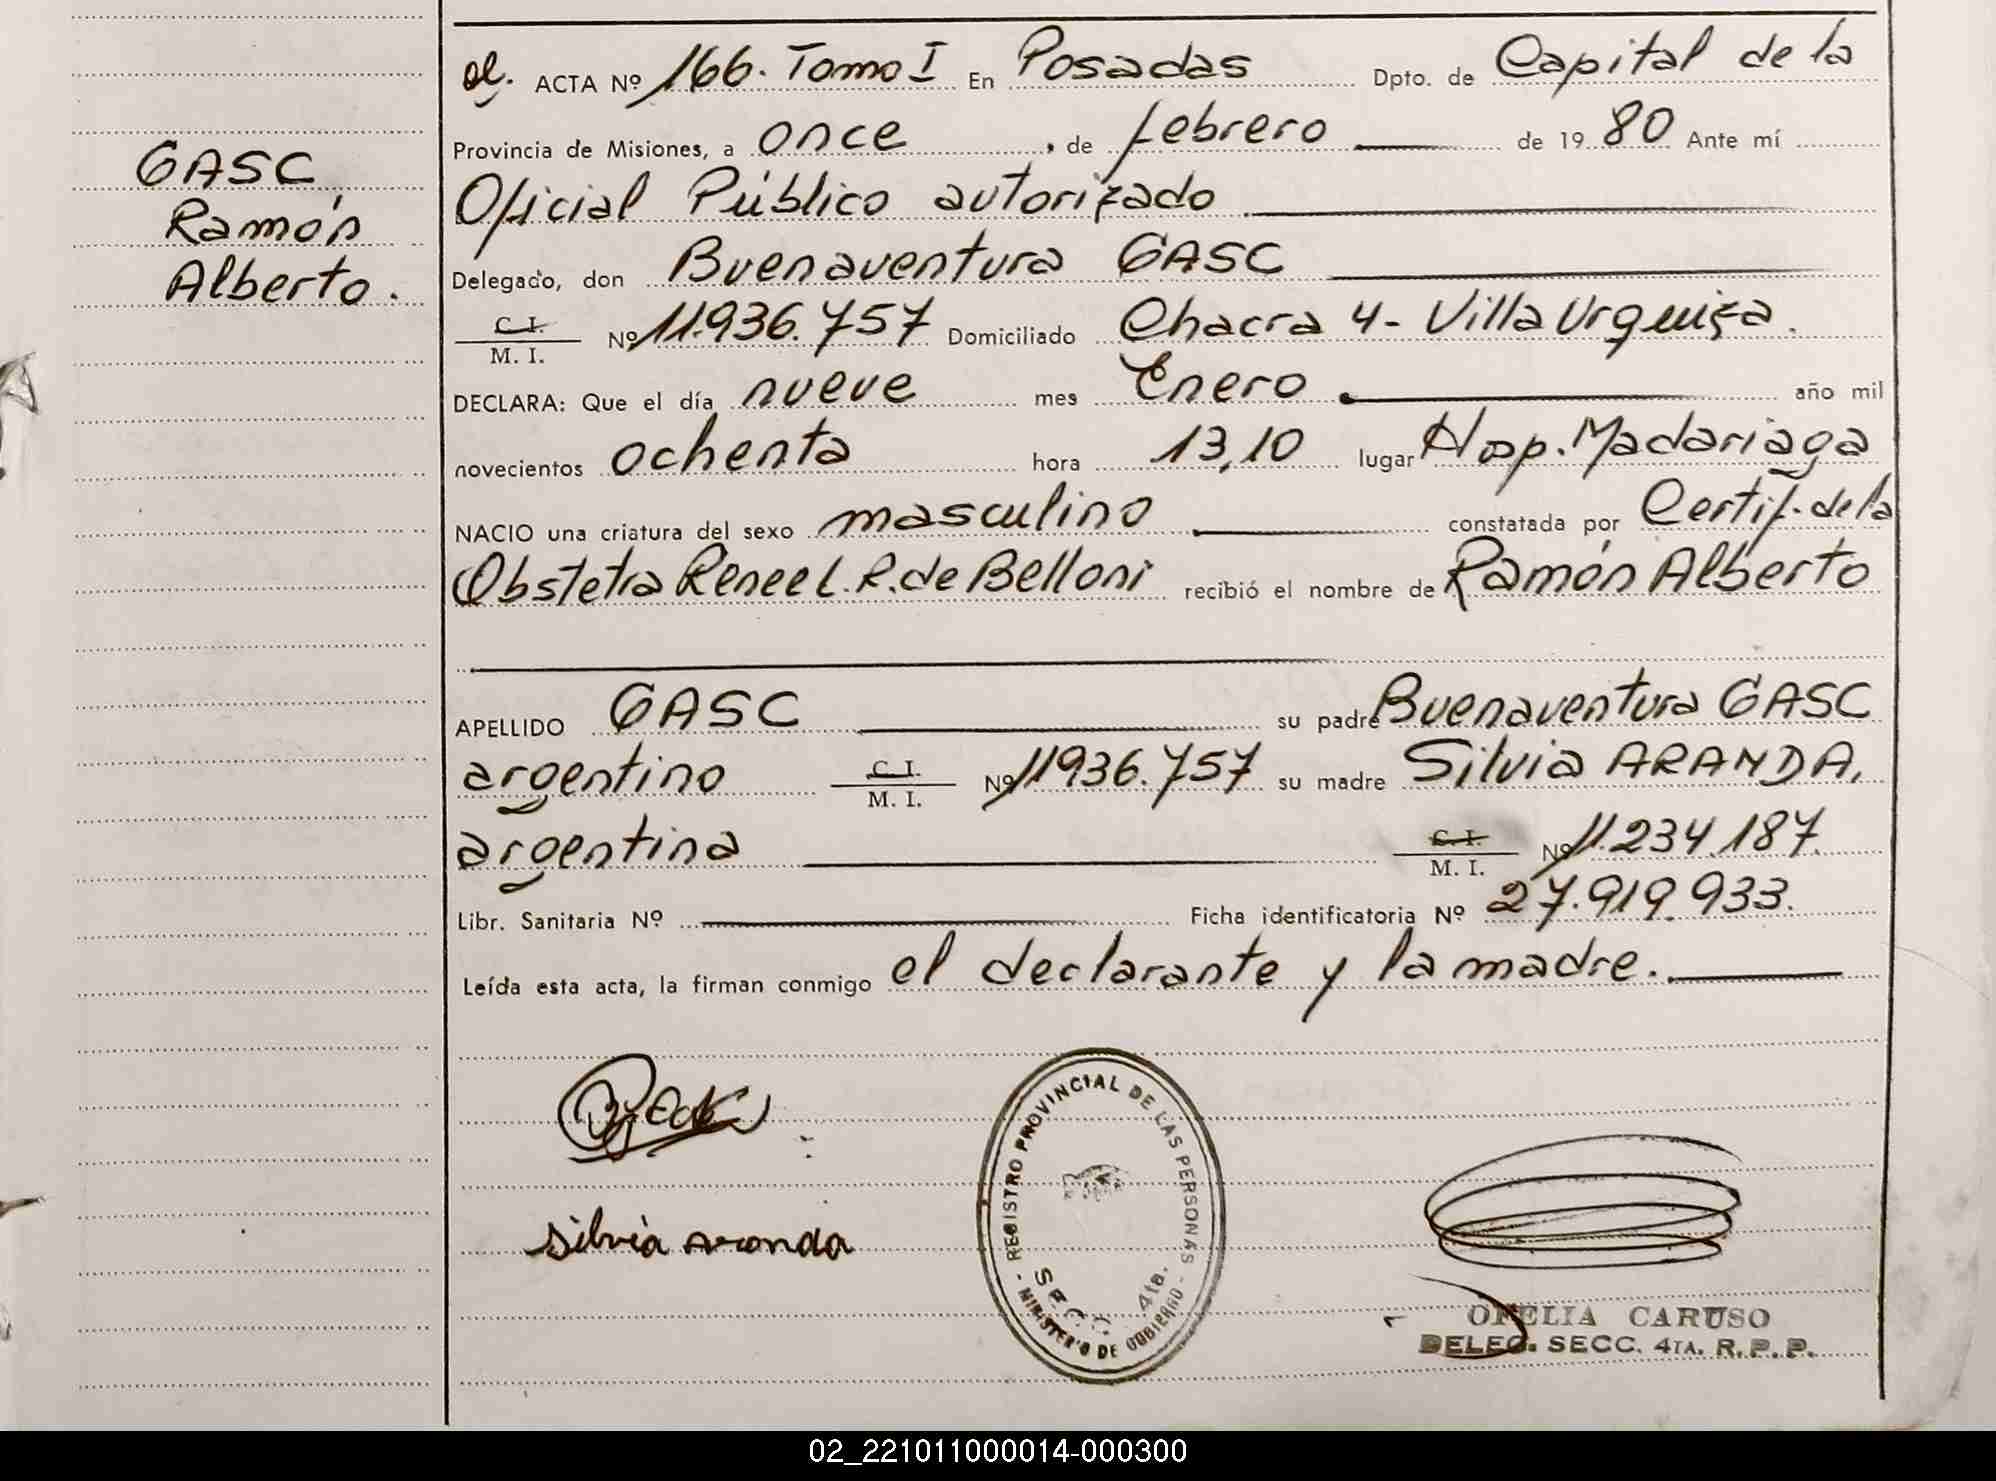 GASC,
Ramón
Alberto.
ACTA Nº 166. Tomo I En Posadas Dpto. de Capital de la
Provincia de Misiones, a once, de febrero de 1980 Ante mí
Oficial Público autorizado
Delegado, don Buenaventura GASC
C. I. / M. I. Nº 11.936.757 Domiciliado Chacra 4- Villa Urquiza.
DECLARA: Que el día nueve mes Enero año mil
novecientos ochenta hora 13,10 lugar Hosp. Madariaga
NACIO una criatura del sexo masculino constatada por Certif. de la
Obstetra Renee L. R. de Belloni recibió el nombre de Ramón Alberto
APELLIDO GASC su padre Buenaventura GASC
argentino C. I. / M. I. Nº 11936.757 su madre Silvia ARANDA,
argentina C. I. / M. I. Nº 11.234.187.
Libr. Sanitaria Nº Ficha identificatoria Nº 27.919.933.
Leída esta acta, la firman conmigo el declarante y la madre.
silvia aranda
- REGISTRO PROVINCIAL DE LAS PERSONAS -
MINISTERIO DE GOBIERNO
SECC. 4ta.
OFELIA CARUSO
DELEG. SECC. 4TA. R. P. P.
02_221011000014-000300